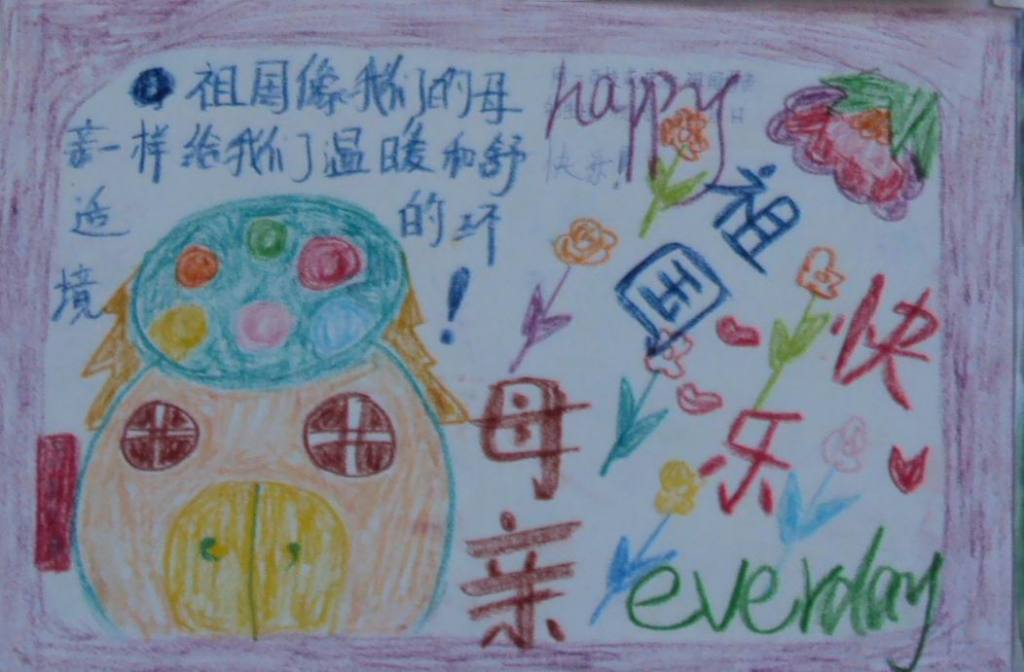 祖国像我们的母
亲一样给我们温暖和舒
适的环
境!
happy
快乐!
祖国
母亲
快乐
everyday